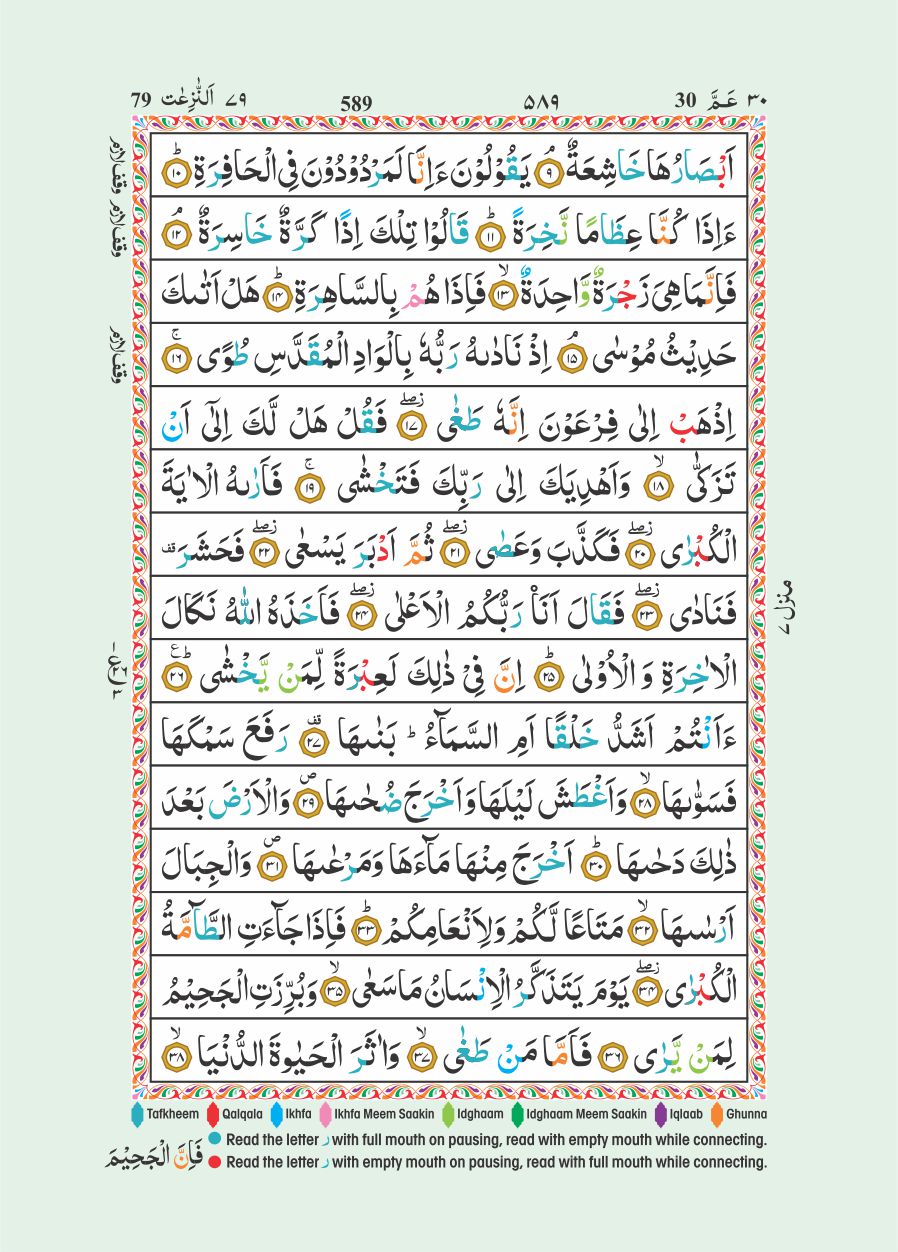 79 اَلنّٰزِعٰت ۷۹ 589 ۵۸۹ 30 عَمَّ ۳۰
اَبْصَارُهَا خَاشِعَةٌ ۘ ۹ يَقُوْلُوْنَ ءَاِنَّا لَمَرْدُوْدُوْنَ فِى الْحَافِرَةِ ؕ ۱۰
ءَاِذَا كُنَّا عِظَامًا نَّخِرَةً ؕ ۱۱ قَالُوْا تِلْكَ اِذًا كَرَّةٌ خَاسِرَةٌ ۘ ۱۲
فَاِنَّمَا هِىَ زَجْرَةٌ وَّاحِدَةٌ ۙ ۱۳ فَاِذَا هُمْ بِالسَّاهِرَةِ ؕ ۱۴ هَلْ اَتٰىكَ
حَدِيْثُ مُوْسٰى ۘ ۱۵ اِذْ نَادٰىهُ رَبُّهٗ بِالْوَادِ الْمُقَدَّسِ طُوًى ۚ ۱۶
اِذْهَبْ اِلٰى فِرْعَوْنَ اِنَّهٗ طَغٰى ۖ ز ۱۷ فَقُلْ هَلْ لَّكَ اِلٰٓى اَنْ
تَزَكّٰى ۙ ۱۸ وَاَهْدِيَكَ اِلٰى رَبِّكَ فَتَخْشٰى ۚ ۱۹ فَاَرٰىهُ الْاٰيَةَ
الْكُبْرٰى ۖ ز ۲۰ فَكَذَّبَ وَعَصٰى ۖ ز ۲۱ ثُمَّ اَدْبَرَ يَسْعٰى ۖ ز ۲۲ فَحَشَرَ قف
فَنَادٰى ۖ ز ۲۳ فَقَالَ اَنَا۠ رَبُّكُمُ الْاَعْلٰى ۖ ز ۲۴ فَاَخَذَهُ اللّٰهُ نَكَالَ
الْاٰخِرَةِ وَالْاُوْلٰى ؕ ۲۵ اِنَّ فِىْ ذٰلِكَ لَعِبْرَةً لِّمَنْ يَّخْشٰى ؕ ع ۲۶
ءَاَنْتُمْ اَشَدُّ خَلْقًا اَمِ السَّمَآءُ ؕ بَنٰىهَا قف ۲۷ رَفَعَ سَمْكَهَا
فَسَوّٰىهَا ۙ ۲۸ وَاَغْطَشَ لَيْلَهَا وَاَخْرَجَ ضُحٰىهَا ص ۲۹ وَالْاَرْضَ بَعْدَ
ذٰلِكَ دَحٰىهَا ؕ ۳۰ اَخْرَجَ مِنْهَا مَآءَهَا وَمَرْعٰىهَا ص ۳۱ وَالْجِبَالَ
اَرْسٰىهَا ۙ ۳۲ مَتَاعًا لَّكُمْ وَلِاَنْعَامِكُمْ ؕ ۳۳ فَاِذَا جَآءَتِ الطَّآمَّةُ
الْكُبْرٰى ۖ ز ۳۴ يَوْمَ يَتَذَكَّرُ الْاِنْسَانُ مَا سَعٰى ۙ ۳۵ وَبُرِّزَتِ الْجَحِيْمُ
لِمَنْ يَّرٰى ۳۶ فَاَمَّا مَنْ طَغٰى ۙ ۳۷ وَاٰثَرَ الْحَيٰوةَ الدُّنْيَا ۙ ۳۸
وقف لازم
وقف لازم
وقف لازم
منزل ۷
Tafkheem Qalqala Ikhfa Ikhfa Meem Saakin Idghaam Idghaam Meem Saakin Iqlaab Ghunna
Read the letter ر with full mouth on pausing, read with empty mouth while connecting.
Read the letter ر with empty mouth on pausing, read with full mouth while connecting.
فَاِنَّ الْجَحِيْمَ